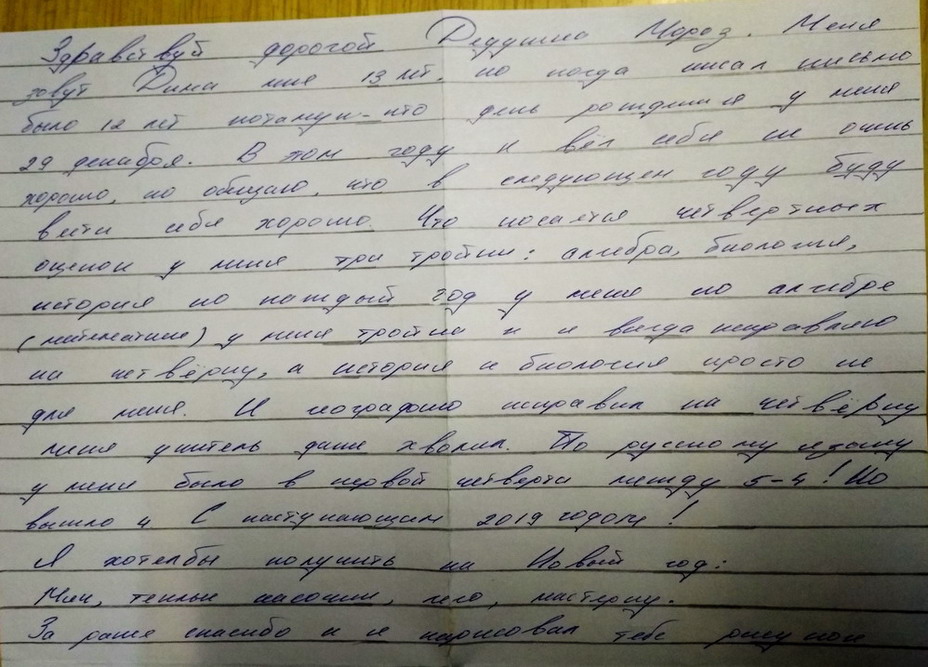 Здравствуй дорогой Дедушка Мороз. Меня
зовут Дима мне 13 лет. но когда писал письмо
было 12 лет потамук-что день рождения у меня
29 декабря. В том году я вёл себя не очинь
хорошо, но обищаю, что в следующем году буду
вести себя хорошо. Что косается четвертных
оценок у меня три тройки: алгебра, биология,
история но каждый год у меня по алгебре
(математике) у меня тройка и я всегда исправляю
на четвёрку, а история и биология просто не
для меня. И географию исправил на четвёрку
меня учитель даже хвалил. По русскому языку
у меня было в первой четверти между 5-4! Но
вышло 4 С наступающим 2019 годом!
Я хотелбы получить на Новый год:
Мяч, теплые насочки, лего, мастерку.
За рание спасибо и я нарисовал тебе рисунок